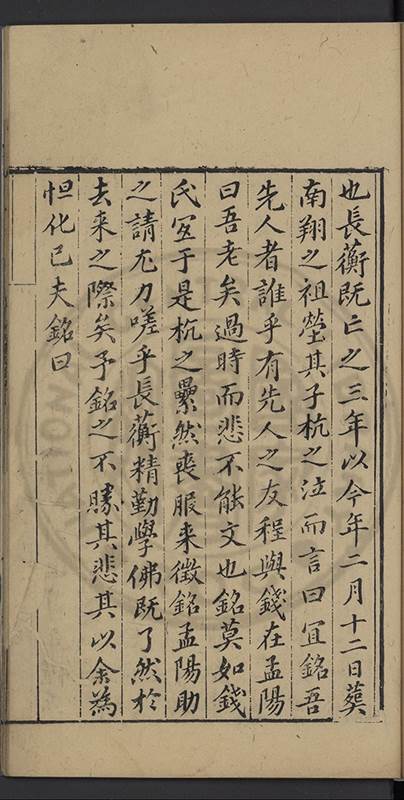 也長蘅既亡之三年以今年二月十二日葬
南翔之祖塋其子杭之泣而言曰宜銘吾
先人者誰乎有先人之友程與錢在孟陽
曰吾老矣過時而悲不能文也銘莫如錢
氏宜于是杭之纍然喪服来徵銘孟陽助
之請尤力嗟乎長蘅精勤學佛既了然於
去来之際矣予銘之不勝其悲其以余為
怛化已夫銘曰